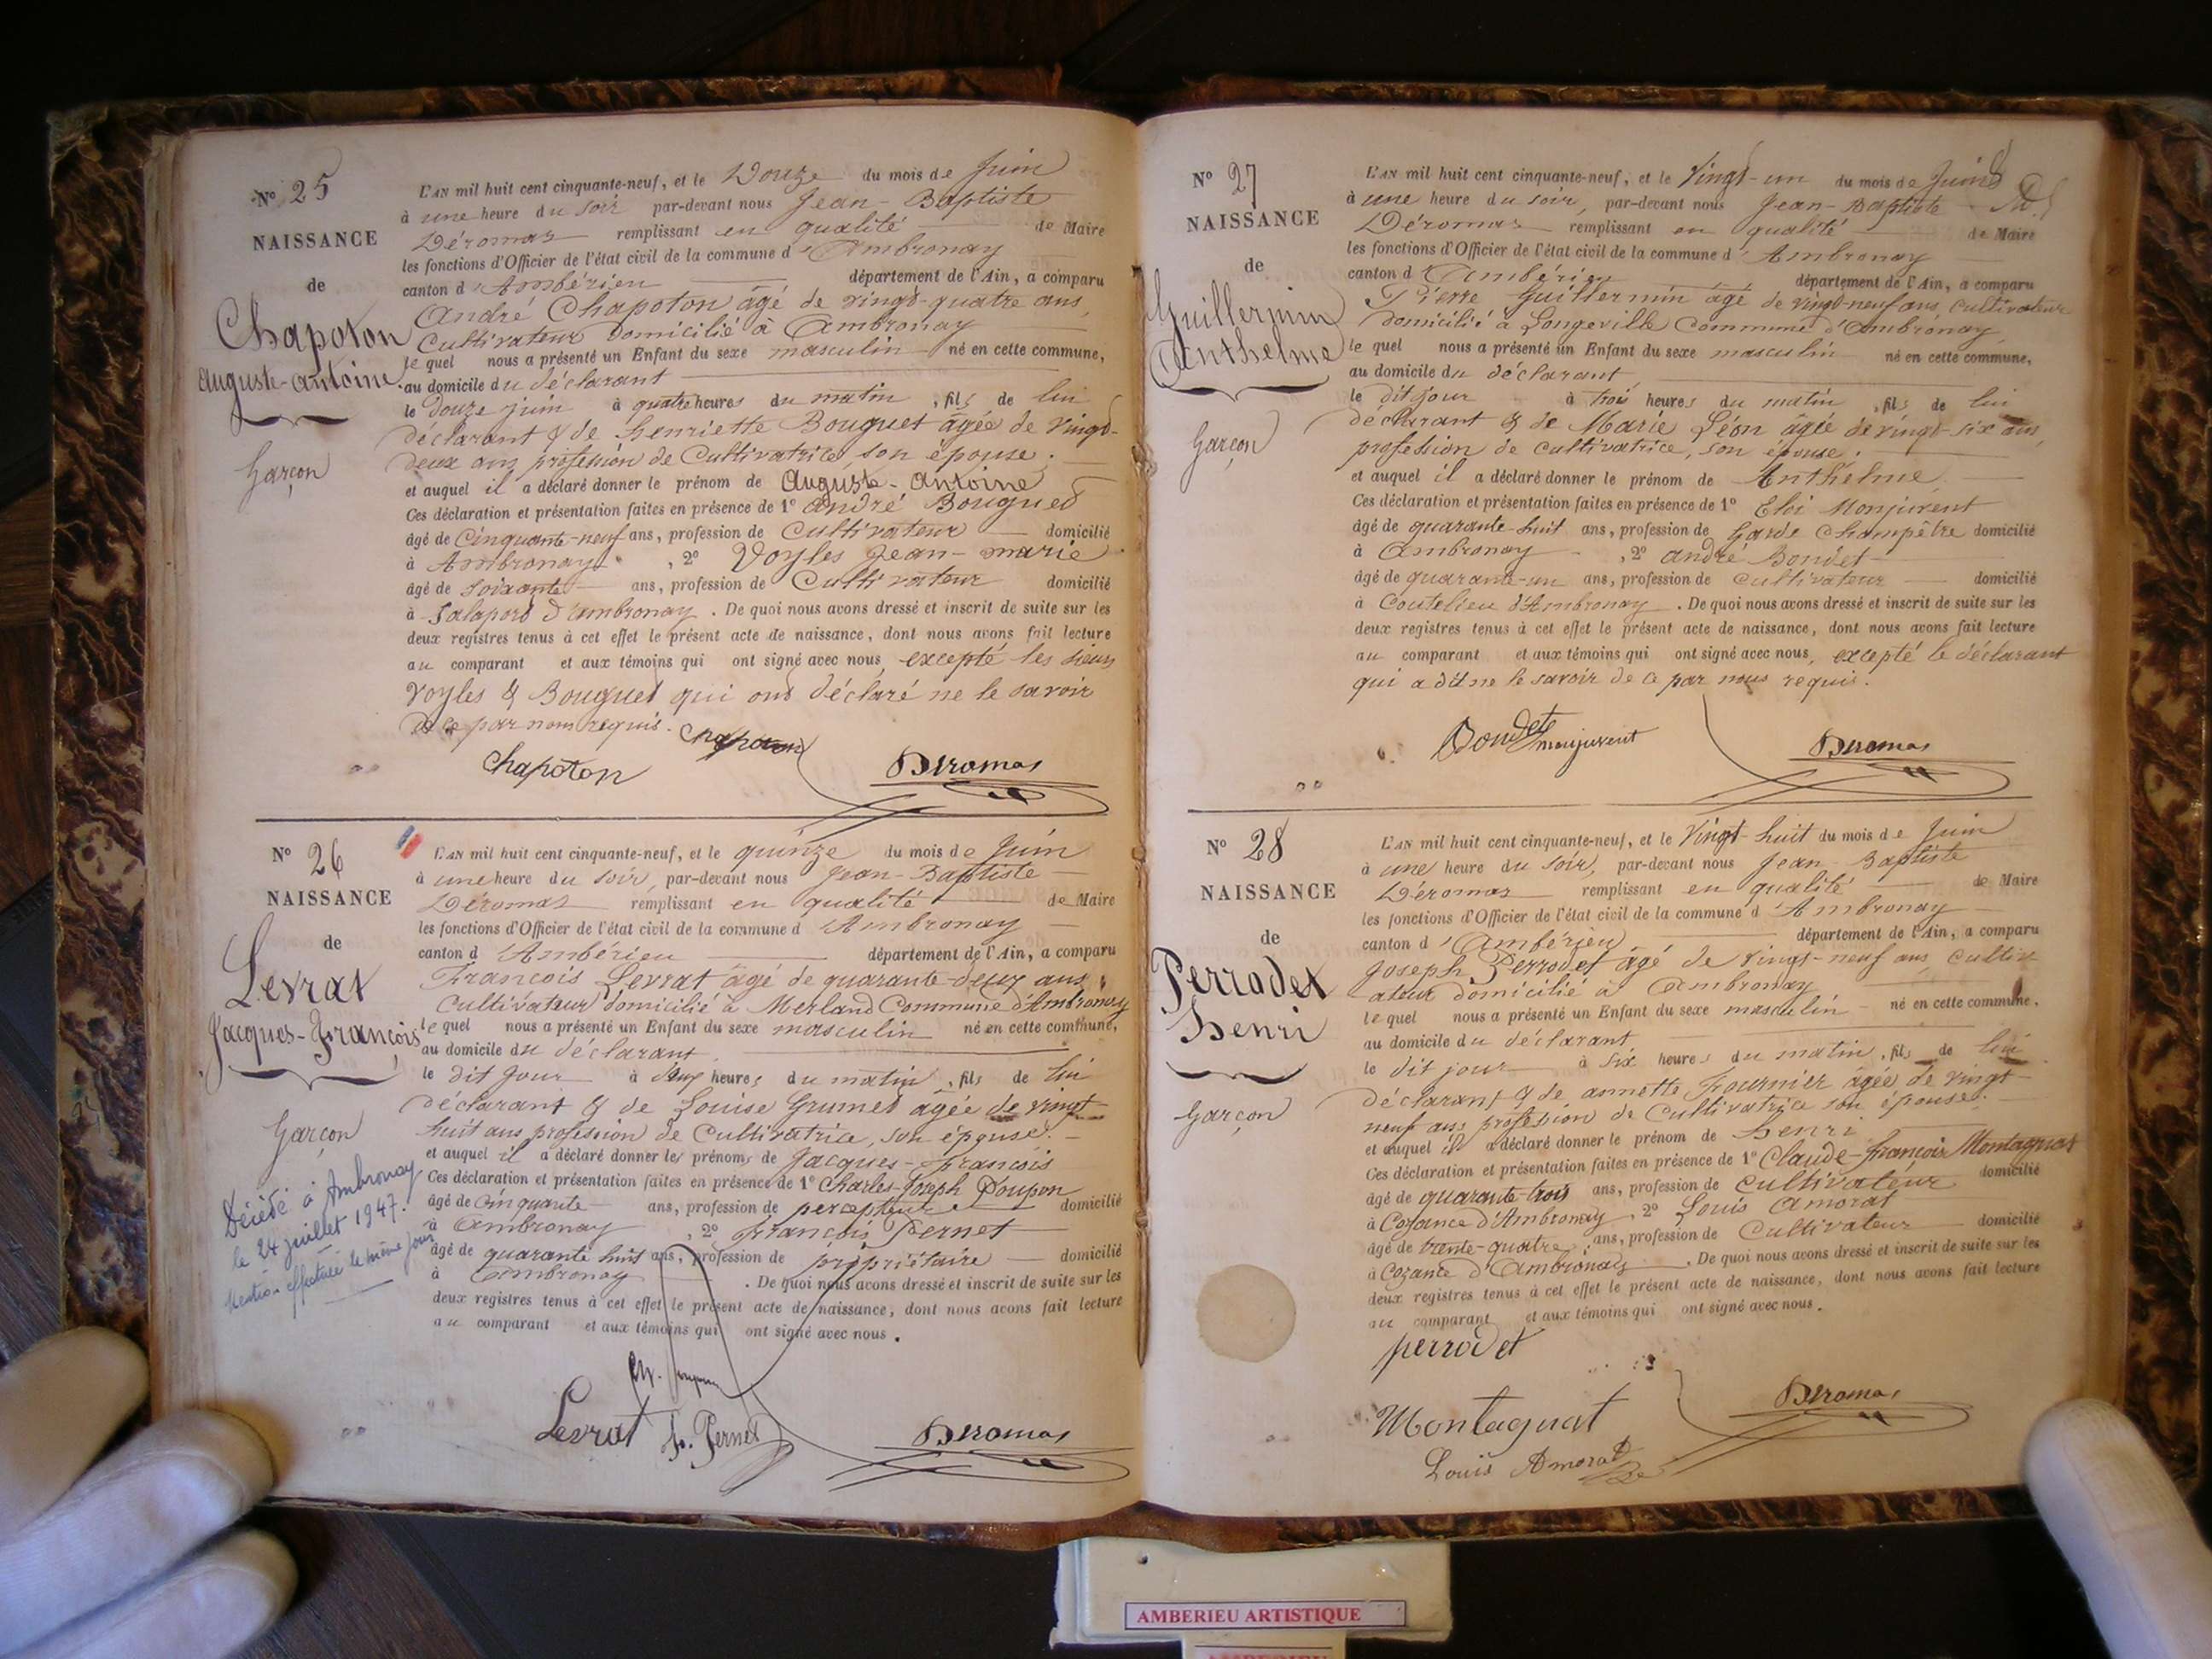 N° 25
NAISSANCE
de
Chapoton
Auguste-Antoine
Garçon
L'AN mil huit cent cinquante-neuf, et le Douze du mois de Juin
à une heure du soir par-devant nous Jean-Baptiste
Déromas remplissant en qualité de Maire
les fonctions d'Officier de l'état civil de la commune d'Ambronay
canton d'Ambérieu département de l'Ain, a comparu
André Chapoton âgé de vingt-quatre ans,
Cultivateur domicilié à Ambronay
lequel nous a présenté un Enfant du sexe masculin né en cette commune,
au domicile du déclarant
le douze juin à quatre heures du matin, fils de lui
déclarant & de henriette Bouguet âgée de vingt-
deux ans profession de Cultivatrice, son épouse.
et auquel il a déclaré donner le prénom de Auguste-Antoine
Ces déclaration et présentation faites en présence de 1° André Bouguet
âgé de Cinquante-neuf ans, profession de Cultivateur domicilié
à Ambronay, 2° Voyles Jean-marie
âgé de soixante ans, profession de Cultivateur domicilié
à Salaport d'ambronay. De quoi nous avons dressé et inscrit de suite sur les
deux registres tenus à cet effet le présent acte de naissance, dont nous avons fait lecture
au comparant et aux témoins qui ont signé avec nous, excepté les sieurs
Voyles & Bouguet qui ont déclaré ne le savoir
de ce par nous requis. Chapoton
Chapoton Deromas
N° 26
NAISSANCE
de
Levrat
Jacques-François
Garçon
Décédé à Ambronay
le 24 juillet 1947.
Mention effectuée le même jour
L'AN mil huit cent cinquante-neuf, et le quinze du mois de Juin
à une heure du soir, par-devant nous Jean-Baptiste
Déromas remplissant en qualité de Maire
les fonctions d'Officier de l'état civil de la commune d'Ambronay
canton d'Ambérieu département de l'Ain, a comparu
François Levrat âgé de quarante-deux ans
Cultivateur domicilié à Merland Commune d'Ambronay
lequel nous a présenté un Enfant du sexe masculin né en cette commune,
au domicile du déclarant
le dit Jour à deux heures du matin, fils de lui
déclarant & de Louise Grumet âgée de vingt-
huit ans profession de Cultivatrice, son épouse.
et auquel il a déclaré donner les prénoms de Jacques-François
Ces déclaration et présentation faites en présence de 1° Charles-Joseph Poupon
âgé de Cinquante ans, profession de percepteur domicilié
à Ambronay, 2° François Pernet
âgé de quarante huit ans, profession de propriétaire domicilié
à Ambronay. De quoi nous avons dressé et inscrit de suite sur les
deux registres tenus à cet effet le présent acte de naissance, dont nous avons fait lecture
au comparant et aux témoins qui ont signé avec nous.
Levrat F. Pernet Deromas
N° 27
NAISSANCE
de
Guillermin
Anthelme
Garçon
L'AN mil huit cent cinquante-neuf, et le Vingt-un du mois de Juin
à une heure du soir, par-devant nous Jean-Baptiste
Déromas remplissant en qualité de Maire
les fonctions d'Officier de l'état civil de la commune d'Ambronay
canton d'Ambérieu département de l'Ain, a comparu
Pierre Guillermin âgé de vingt-neuf ans, cultivateur
domicilié à Longeville Commune d'Ambronay
lequel nous a présenté un Enfant du sexe masculin né en cette commune,
au domicile du déclarant
le dit jour à trois heures du matin, fils de lui
déclarant & de Marie Léon âgée de vingt-six ans,
profession de cultivatrice, son épouse.
et auquel il a déclaré donner le prénom de Anthelme
Ces déclaration et présentation faites en présence de 1° Eloi Monjuvent
âgé de quarante-huit ans, profession de Garde Champêtre domicilié
à Ambronay, 2° André Boudet
âgé de quarante-un ans, profession de Cultivateur domicilié
à Coutelieu d'Ambronay. De quoi nous avons dressé et inscrit de suite sur les
deux registres tenus à cet effet le présent acte de naissance, dont nous avons fait lecture
au comparant et aux témoins qui ont signé avec nous, excepté le déclarant
qui a dit ne le savoir de ce par nous requis.
Boudet monjuvent Deromas
N° 28
NAISSANCE
de
Perrodet
Henri
Garçon
L'AN mil huit cent cinquante-neuf, et le Vingt-huit du mois de Juin
à une heure du soir, par-devant nous Jean-Baptiste
Déromas remplissant en qualité de Maire
les fonctions d'Officier de l'état civil de la commune d'Ambronay
canton d'Ambérieu département de l'Ain, a comparu
Joseph Perrodet âgé de vingt-neuf ans cultiv
ateur domicilié à Ambronay
lequel nous a présenté un Enfant du sexe masculin né en cette commune,
au domicile du déclarant
le dit jour à six heures du matin, fils de lui
déclarant & de annette Fournier âgée de vingt-
neuf ans profession de Cultivatrice son épouse.
et auquel il a déclaré donner le prénom de henri
Ces déclaration et présentation faites en présence de 1° Claude-françois Montagnat
âgé de quarante-trois ans, profession de cultivateur domicilié
à Cozance d'Ambronay, 2° Louis Amorat
âgé de trente-quatre ans, profession de Cultivateur domicilié
à Cozance d'Ambronay. De quoi nous avons dressé et inscrit de suite sur les
deux registres tenus à cet effet le présent acte de naissance, dont nous avons fait lecture
au comparant et aux témoins qui ont signé avec nous.
perrodet
Montagnat Deromas
Louis Amorat
AMBERIEU ARTISTIQUE